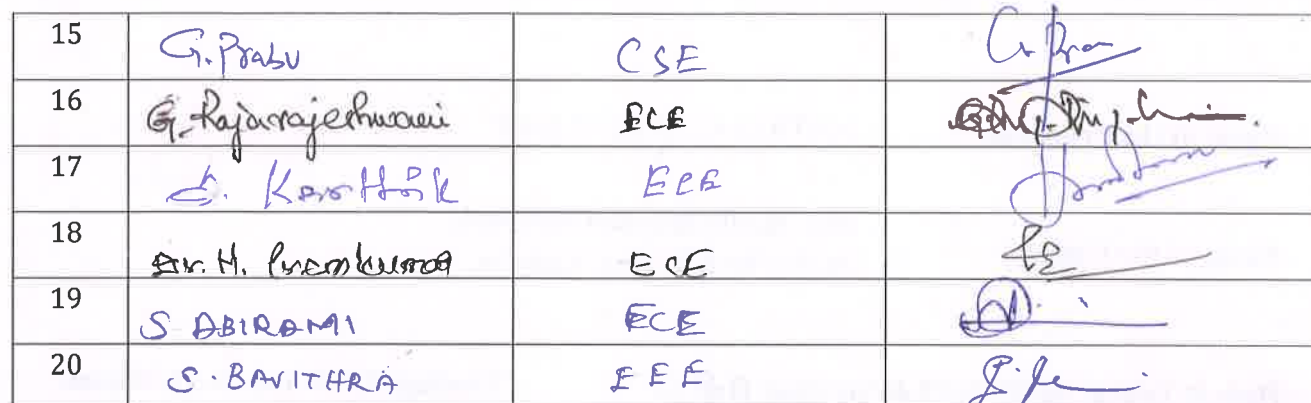 15 G. Prabu CSE
16 G. Rajarajeshwari ECE
17 S. Karthik ECE
18 Dr. H. Premkumar ECE
19 S ABIRAMI ECE
20 S. BAVITHRA EEE